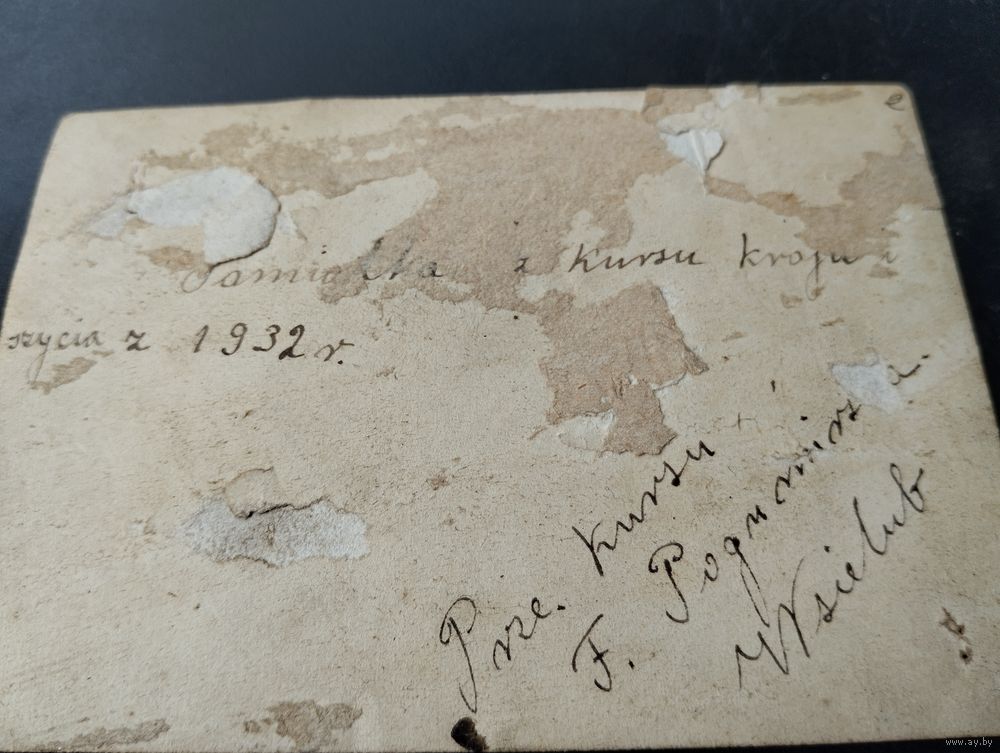 Pamiątka z kursu kroju i
szycia z 1932 r.
Prze. kursu
F.
Wsielub
www.ay.by